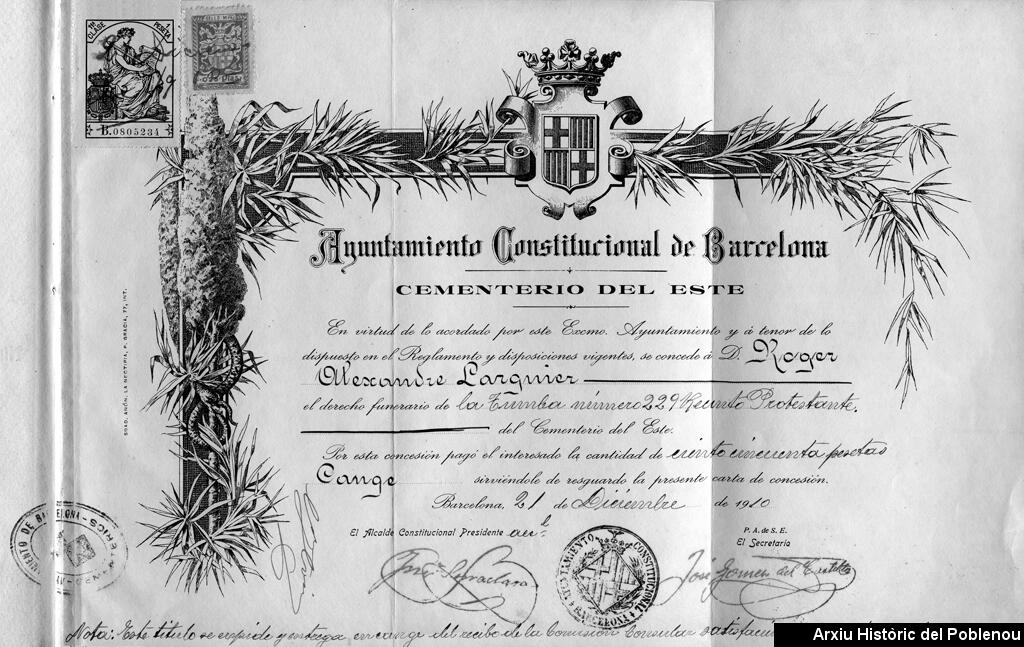 11ª CLASE 1 PESETA
B.0805234
Ayuntamiento Constitucional de Barcelona
CEMENTERIO DEL ESTE
En virtud de lo acordado por este Excmo. Ayuntamiento y á tenor de lo
dispuesto en el Reglamento y disposiciones vigentes, se concede á D. Roger
Alexandre Larguier
el derecho funerario de la Tumba número 229 Recinto Protestante.
del Cementerio del Este.
Por esta concesión pagó el interesado la cantidad de ciento cincuenta pesetas
Cange sirviéndole de resguardo la presente carta de concesión.
Barcelona, 21 de Diciembre de 1910
El Alcalde Constitucional Presidente accl.
P. A. de S. E.
El Secretario
José Gomez del Castillo
AYUNTAMIENTO CONSTITUCIONAL
BARCELONA
Nota: Este titulo se expide y entrega en cange del recibo de la Comisión Consular
Arxiu Històric del Poblenou